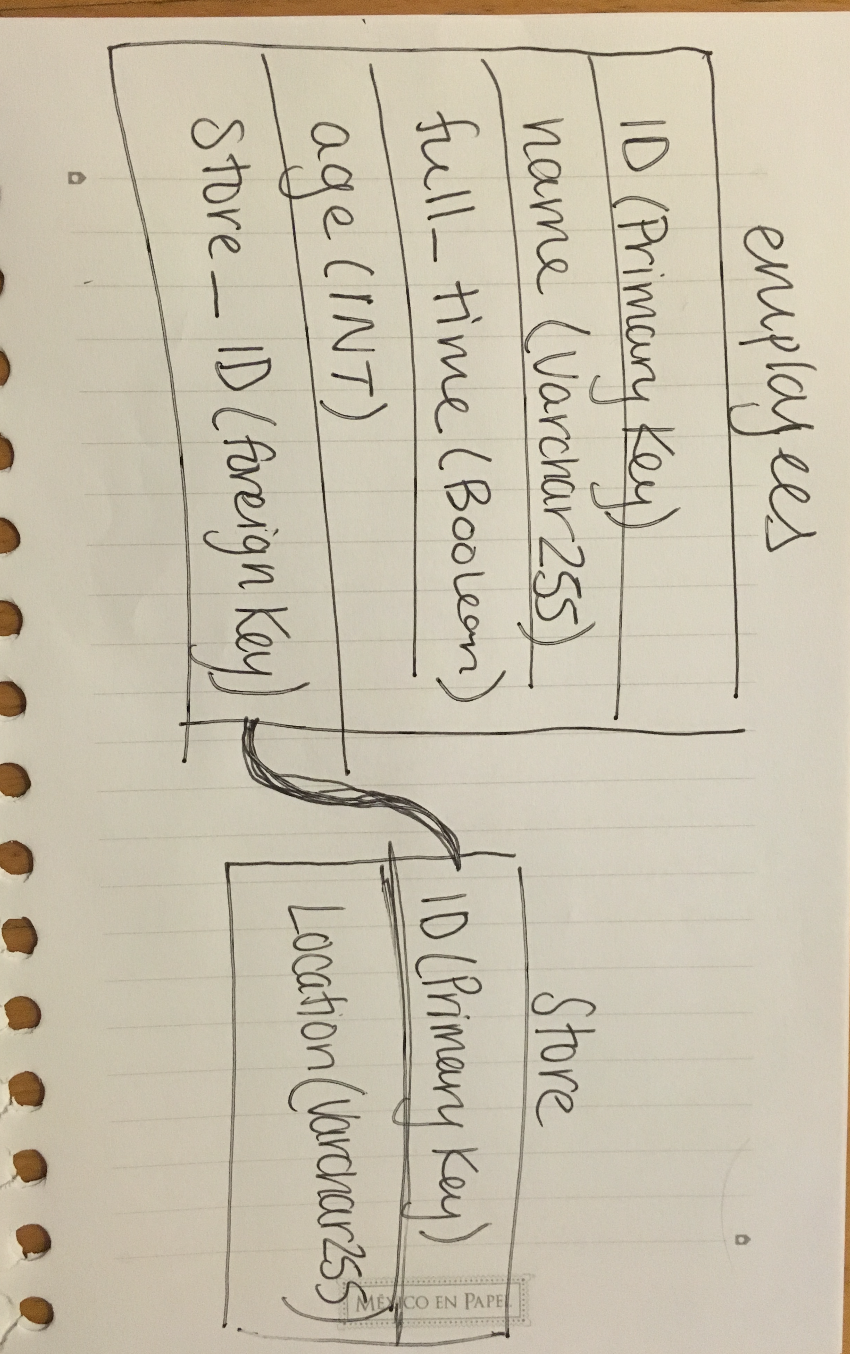 employees
ID (Primary Key)
name (Varchar255)
full_time (Boolean)
age (INT)
Store_ID (foreign Key)
Store
ID (Primary Key)
Location (Varchar255)
MÉXICO EN PAPEL